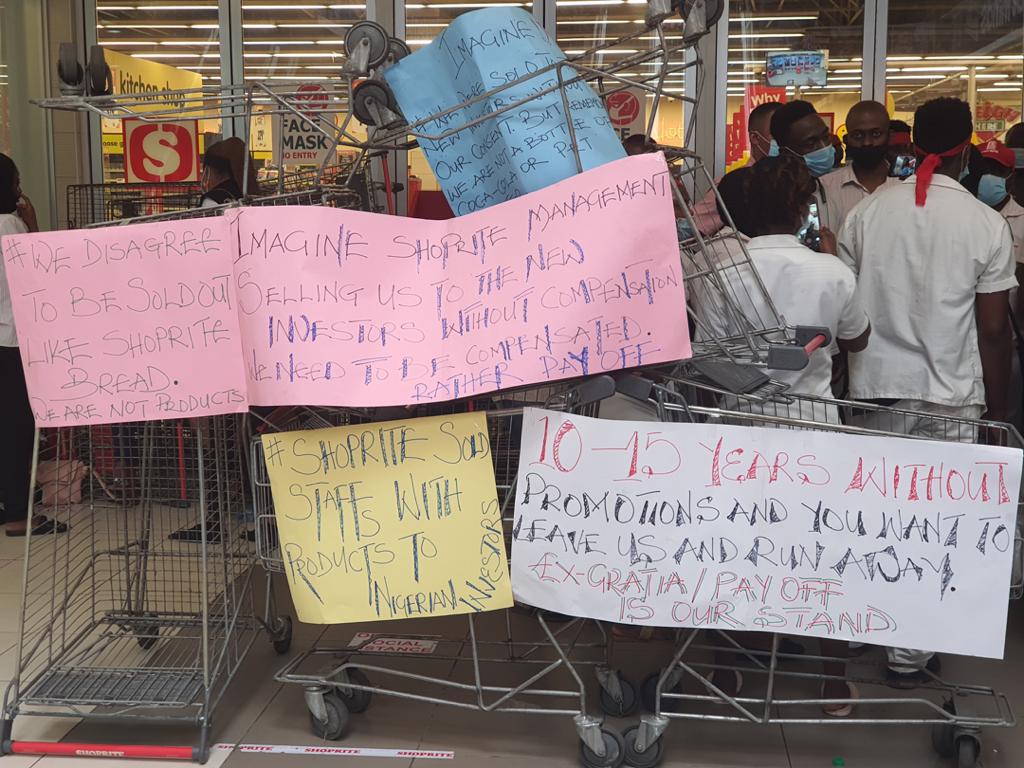 kitchen shop
S
FACE
MASK
NO ENTRY
Why
HERE
IMAGINE
WERE SOLD
NEW INVESTORS WITHOUT
OUR CONSENT. BUT REMEMBER
WE ARE NOT A BOTTLE OF
COCACOLA OR PET
#WE DISAGREE
TO BE SOLD OUT
LIKE SHOPRITE
BREAD.
WE ARE NOT PRODUCTS
IMAGINE SHOPRITE MANAGEMENT
SELLING US TO THE NEW
INVESTORS WITHOUT COMPENSATION
WE NEED TO BE COMPENSATED.
RATHER PAY OFF
#SHOPRITE SOLD
STAFFS WITH
PRODUCTS TO
NIGERIAN INVESTORS
10-15 YEARS WITHOUT
PROMOTIONS AND YOU WANT TO
LEAVE US AND RUN AWAY.
EX-GRATIA/PAY OFF
IS OUR STAND
SOCIAL
DISTANCE
SHOPRITE
SHOPRITE SHOPRITE SHOPRITE